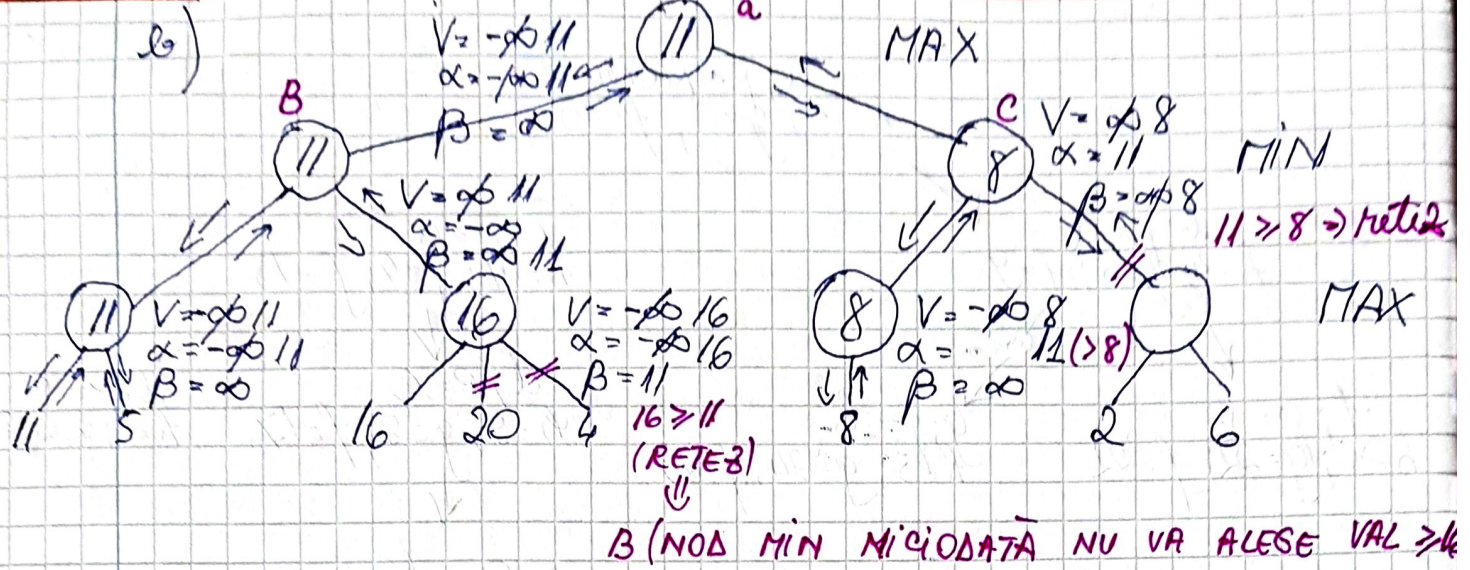 b)
a
V = -∞ 11
α = -∞ 11
β = ∞
11
MAX
B
11
C
8
V = ∞ 8
α = 11
β = ∞ 8
MIN
11 ≥ 8 ⇒ retez
V = ∞ 11
α = -∞
β = ∞ 11
11
V = -∞ 11
α = -∞ 11
β = ∞
16
V = -∞ 16
α = -∞ 16
β = 11
8
V = -∞ 8
α = 11 (>8)
β = ∞
MAX
11 5 16 20 4
16 ≥ 11
(RETEZ)
⇓
8
2 6
B (NOD MIN NICIODATĂ NU VA ALEGE VAL ≥ 16